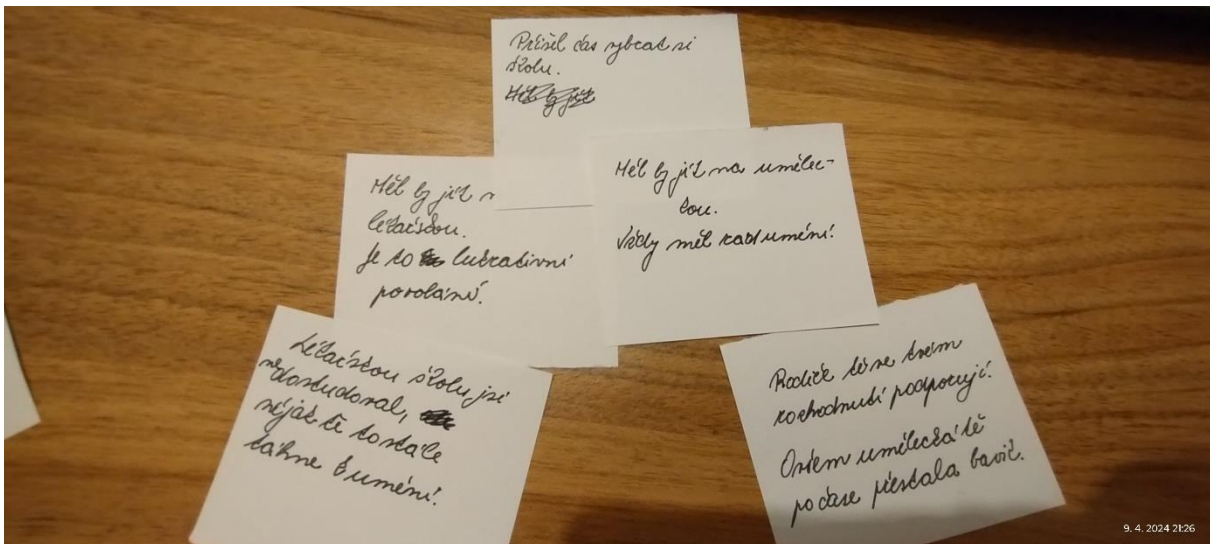 Přišel čas vybrat si
školu.
Měl by jít
lékařskou.
Je to lukrativní
povolání.
Měl by jít na umělec-
kou.
Vždy měl rád umění.
Lékařskou školu jsi
nedostudoval,
nějak tě to stále
táhne k umění.
Rodiče tě ve tvém
rozhodnutí podporují.
Ovšem umělecká tě
po čase přestala bavit.
9. 4. 2024 21:26